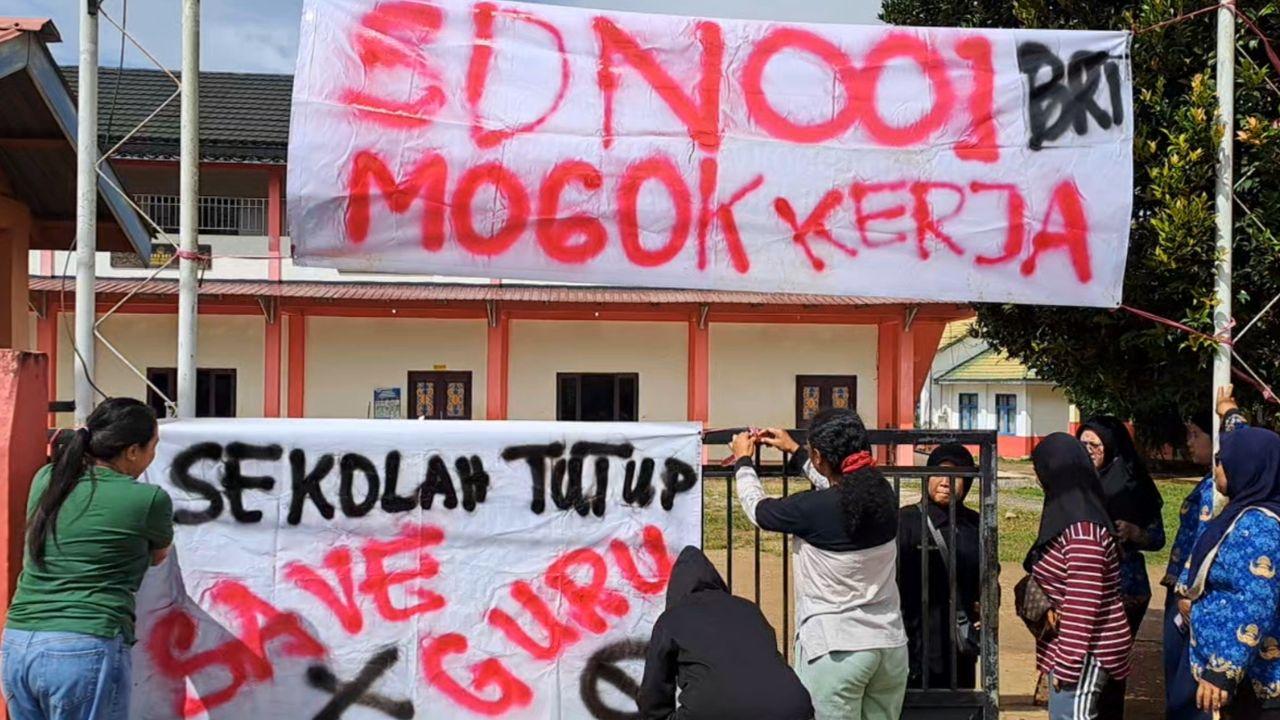 SDN001 BRT
MOGOK KERJA
SEKOLAH TUTUP
SAVE GURU